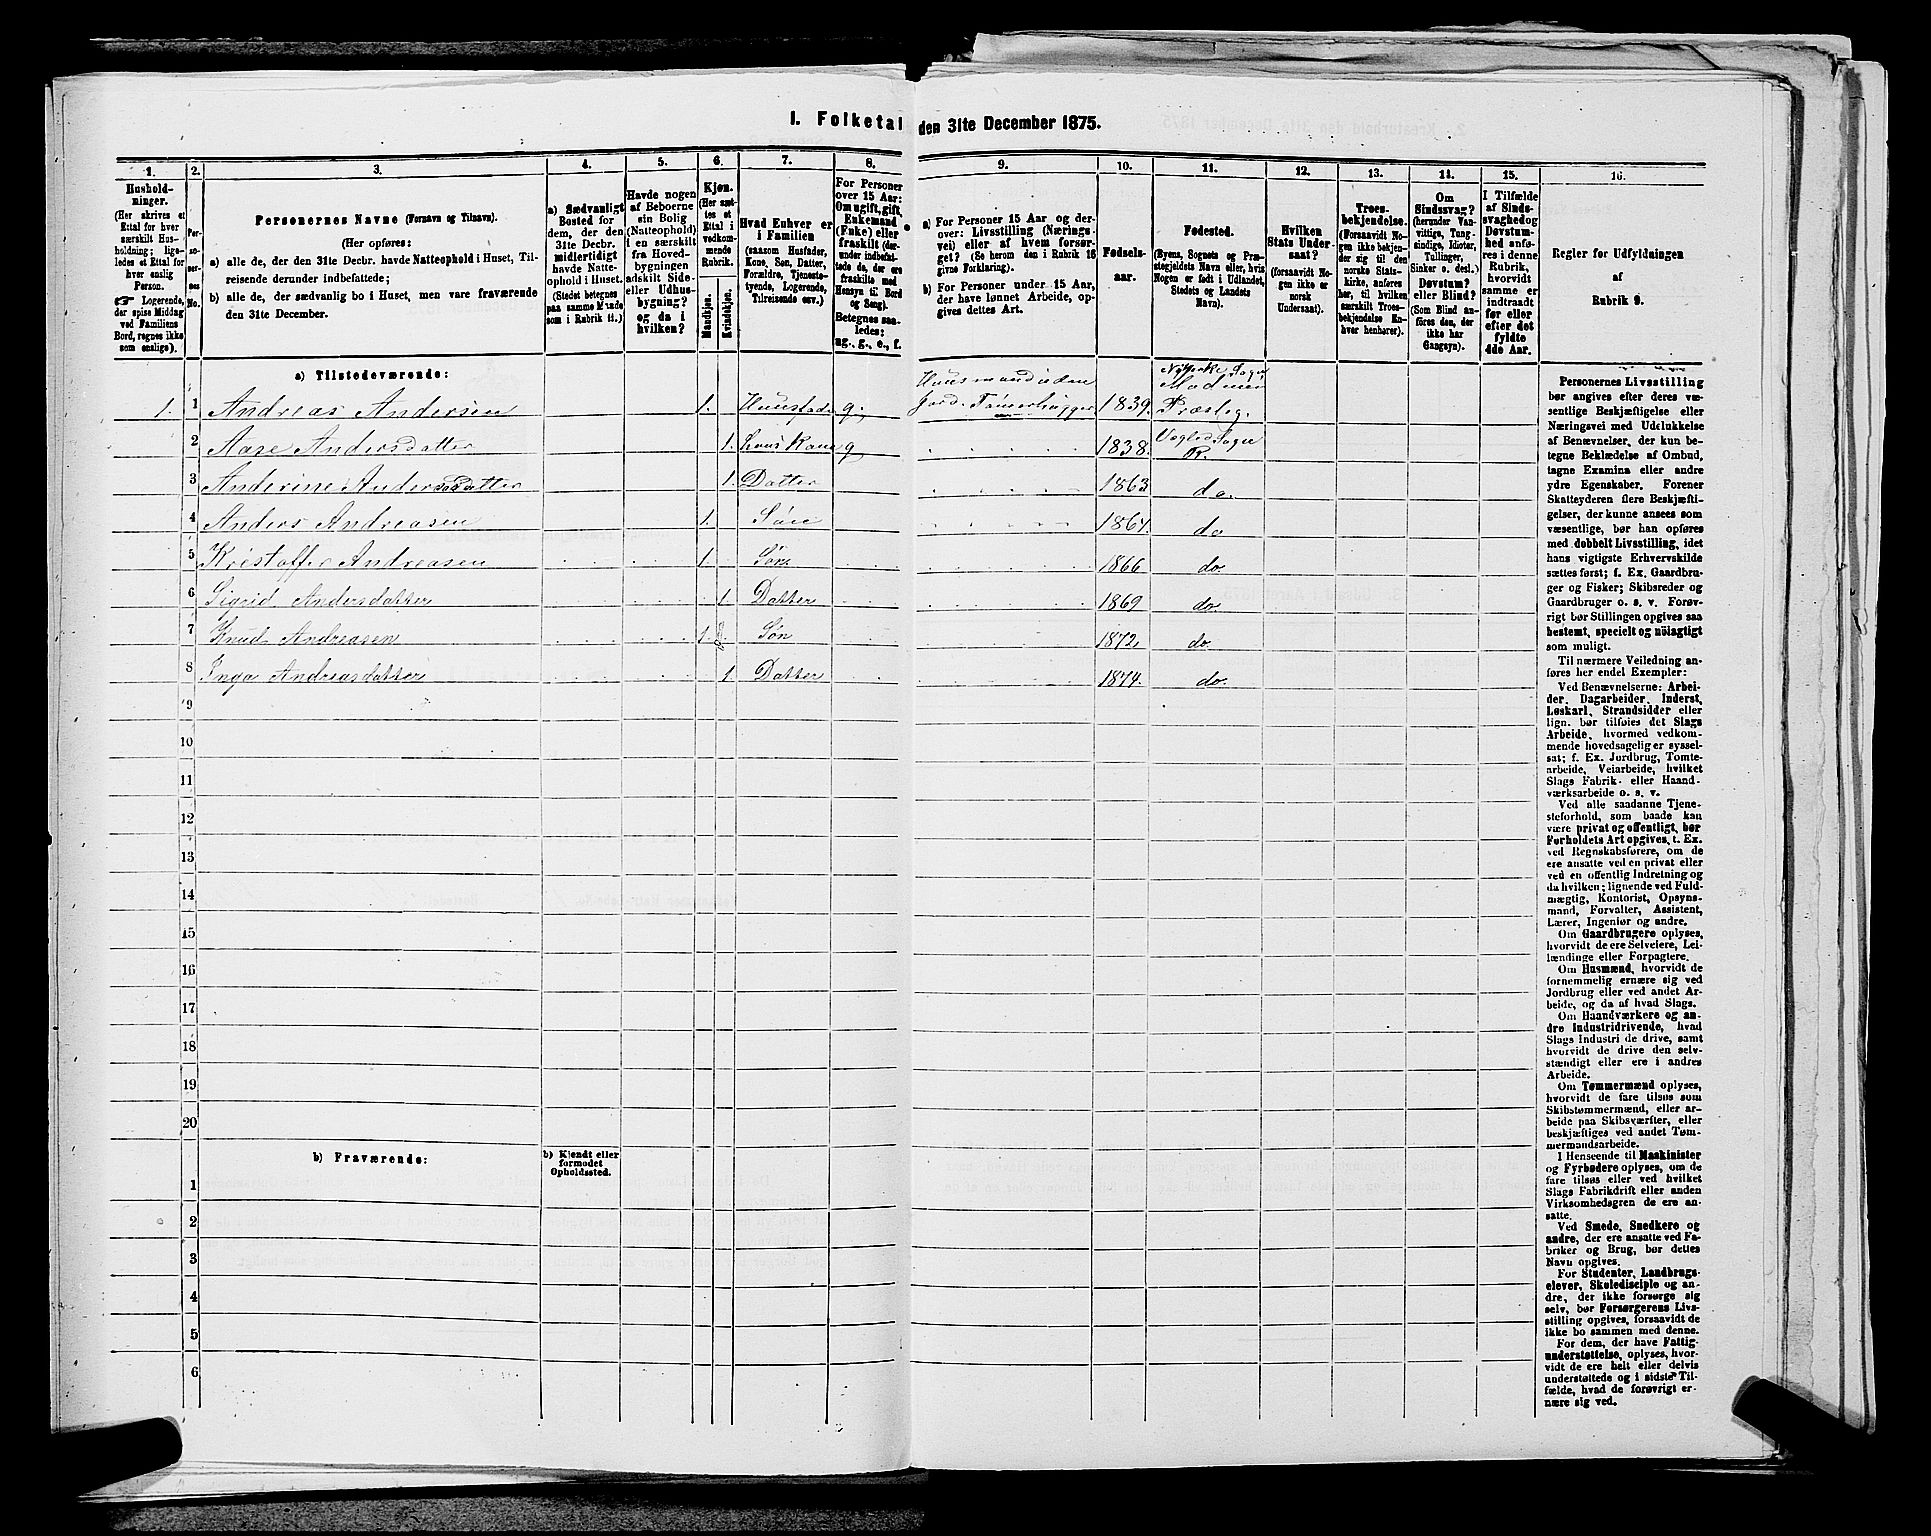 I. Folketal den 31te December 1875.
1.
2.
3.
4.
5.
6.
7.
8.
9.
10.
11.
12.
13.
14.
15.
16.
Hushold-
ninger.
(Her skrives et
Ettal for hver
særskilt Hus-
holdning; lige-
ledes et Ettal for
hver enslig
Person.
☞ Logerende,
der spise Middag
ved Familiens
Bord, regnes ikke
som enslige).
Per-
so-
ner-
nes
No.
Personernes Navne (Fornavn og Tilnavn).
(Her opføres:
a) alle de, der den 31te Decbr. havde Natteophold i Huset, Til-
reisende derunder indbefattede;
b) alle de, der sædvanlig bo i Huset, men vare fraværende
den 31te December.
a) Sædvanligt
Bosted for
dem, der den
31te Decbr.
midlertidigt
havde Natte-
ophold i Huset.
(Stedet betegnes
paa samme Maade
som i Rubrik 11.)
Havde nogen
af Beboerne
sin Bolig
(Natteophold)
i en særskilt
fra Hoved-
bygningen
adskilt Side-
eller Udhus-
bygning?
og da i
hvilken?
Kjøn.
(Her sæt-
tes et
Ettal i
vedkom-
mende
Rubrik.
Mandkjøn.
Kvindekjøn.
Hvad Enhver er
i Familien
(saasom Husfader,
Kone, Søn, Datter,
Forældre, Tjeneste-
tyende, Logerende,
Tilreisende osv.)
For Personer
over 15 Aar:
Om ugift, gift,
Enkemand
(Enke) eller
fraskilt (der-
under indbefat-
tede de, der ere
fraskilte med
Hensyn til Bord
og Seng).
Betegnes saa-
ledes:
ug., g., e., f.
a) For Personer 15 Aar og der-
over: Livsstilling (Nærings-
vei) eller af hvem forsør-
get? (Se herom den i Rubrik 16
givne Forklaring).
b) For Personer under 15 Aar,
der have lønnet Arbeide, op-
gives dettes Art.
Fødsels-
aar.
Fødested.
(Byens, Sognets og Præ-
stegjeldets Navn eller, hvis
Nogen er født i Udlandet,
Stedets og Landets
Navn).
Hvilken
Stats Under-
saat?
(forsaavidt No-
gen ikke er
norsk
Undersaat).
Troes-
bekjendelse.
(Forsaavidt No-
gen ikke bekjen-
der sig til den
norske Stats-
kirke, anføres
her, til hvilken
særskilt Troes-
bekjendelse En-
hver henhører).
Om
Sindssvag?
(herunder Van-
vittige, Tung-
sindige, Idioter,
Tullinger,
Sinker o. desl.)
Døvstum?
eller Blind?
(Som Blind an-
føres den, der
ikke har
Gangsyn).
I Tilfælde
af Sinds-
svaghed og
Døvstum-
hed anfø-
res i denne
Rubrik,
hvorvidt
samme er
indtraadt
før eller
efter det
fyldte
4de Aar.
Regler for Udfyldningen
af
Rubrik 9.
a) Tilstedeværende:
1. 1 Andreas Andersen 1. g. Jord. 1839. Præsteg.
2 Aase Andersdatter 1. g 1838.
3 Anderine Andersdatter 1. Datter 1863 do.
4 Anders Andreasen 1. Søn 1864. do
5 Kristoffer Andreasen 1. Søn 1866 do.
6 Sigrid Andersdatter 1. Datter 1869 do.
7 Knud Andreasen 1. Søn 1872, do.
8 Inga Andreasdatter 1. Datter 1874. do.
9
10
11
12
13
14
15
16
17
18
19
20
b) Fraværende:
b) Kjendt eller
formodet
Opholdssted.
1
2
3
4
5
6
Personernes Livsstilling
bør angives efter deres væ-
sentlige Beskjæftigelse eller
Næringsvei med Udelukkelse
af Benævnelser, der kun be-
tegne Beklædelse af Ombud,
tagne Examina eller andre
ydre Egenskaber. Forener
Skatteyderen flere Beskjæfti-
gelser, der kunne ansees som
væsentlige, bør han opføres
med dobbelt Livsstilling, idet
hans vigtigste Erhvervskilde
sættes først; f. Ex. Gaardbru-
ger og Fisker; Skibsreder og
Gaardbruger o. s. v. Forøv-
rigt bør Stillingen opgives saa
bestemt, specielt og nøiagtigt
som muligt.
Til nærmere Veiledning an-
føres her endel Exempler:
Ved Benævnelserne: Arbei-
der, Dagarbeider, Inderst,
Løskarl, Strandsidder eller
lign. bør tilføies det Slags
Arbeide, hvormed vedkom-
mende hovedsagelig er syssel-
sat; f. Ex. Jordbrug, Tomte-
arbeide, Veiarbeide, hvilket
Slags Fabrik- eller Haand-
værksarbeide o. s. v.
Ved alle saadanne Tjene-
steforhold, som baade kan
være privat og offentligt, bør
Forholdets Art opgives, t. Ex.
ved Regnskabsførere, om de
ere ansatte ved en privat eller
ved en offentlig Indretning og
da hvilken; lignende ved Fuld-
mægtig, Kontorist, Opsyns-
mand, Forvalter, Assistent,
Lærer, Ingeniør og andre.
Om Gaardbrugere oplyses,
hvorvidt de ere Selveiere, Lei-
lændinge eller Forpagtere.
Om Husmænd, hvorvidt de
fornemmelig ernære sig ved
Jordbrug eller ved andet Ar-
beide, og da af hvad Slags.
Om Haandværkere og an-
dre Industridrivende, hvad
Slags Industri de drive, samt
hvorvidt de drive den selv-
stændigt eller ere i andres
Arbeide.
Om Tømmermænd oplyses,
hvorvidt de fare tilsøs som
Skibstømmermænd, eller ar-
beide paa Skibsværfter, eller
beskjæftiges ved andet Tøm-
mermandsarbeide.
I Henseende til Maskinister
og Fyrbødere oplyses, om de
fare tilsøs eller ved hvilket
Slags Fabrikdrift eller anden
Virksomhedsgren de ere an-
satte.
Ved Smede, Snedkere og
andre, der ere ansatte ved Fa-
briker og Brug, bør dettes
Navn opgives.
For Studenter, Landbrugs-
elever, Skoledisciple og an-
dre, der ikke forsørge sig
selv, bør Forsørgerens Livs-
stilling opgives, forsaavidt de
ikke bo sammen med denne.
For dem, der have Fattig-
understøttelse, oplyses, hvor-
vidt de ere helt eller delvis
understøttede og i sidste Til-
fælde, hvad de forøvrigt er-
nære sig ved.